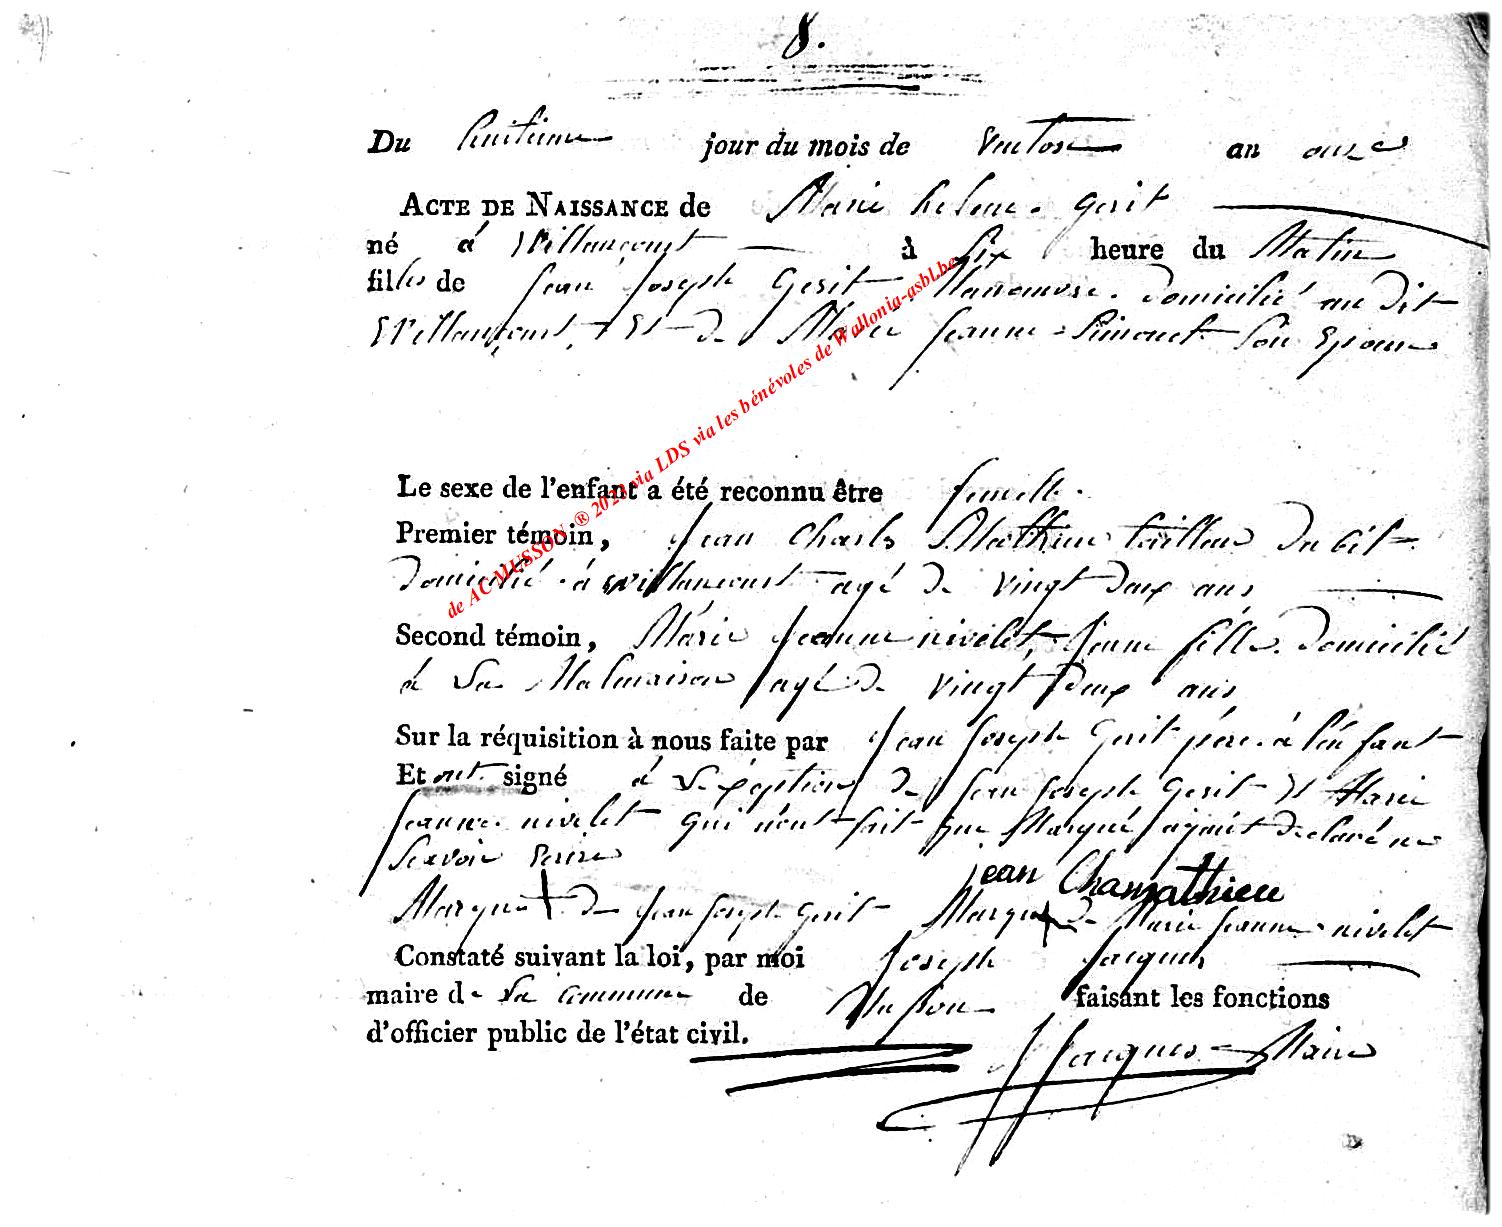 8.
Du huitieme jour du mois de Ventose an onze
ACTE DE NAISSANCE de Marie helene Gerit
né á Willancourt à Six heure du Matin
fille de Jean Joseph Gerit Manoeuvre domicilié au dit
Willancourt Et de Marie Jeanne Simonet Son Epouse
Le sexe de l'enfant a été reconnu être femelle.
Premier témoin, Jean Charle Mathieu tailleur
domicilié á willancourt agé de vingt deux ans
Second témoin, Marie Jeanne nivelet, jeune fille domicilié
á La Malmaison agé de vingt deux ans
Sur la réquisition à nous faite par Jean Joseph Gerit pére á l'énfant
Et ont signé á L'exéption de Jean Joseph Gerit Et Marie
Jeanne nivelet qui n'ont fait que Marqué ayant declaré ne
Scavoir Ecrire
jean Chamathieu
Marque + de Jean Joseph Gerit Marque + de Marie Jeanne nivelet
Constaté suivant la loi, par moi Joseph Jacques
maire de La commune de Musson faisant les fonctions
d'officier public de l'état civil.
J Jacques Maire
de AC MUSSON ® 2021 via LDS via les bénévoles de Wallonia-asbl.be